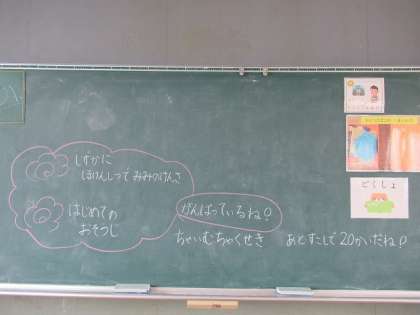 しずかに
ほけんしつで みみのけんさ
はじめての
おそうじ
がんばっているね!
ちゃいむちゃくせき
あとすこしで20かいだね!
どくしょ